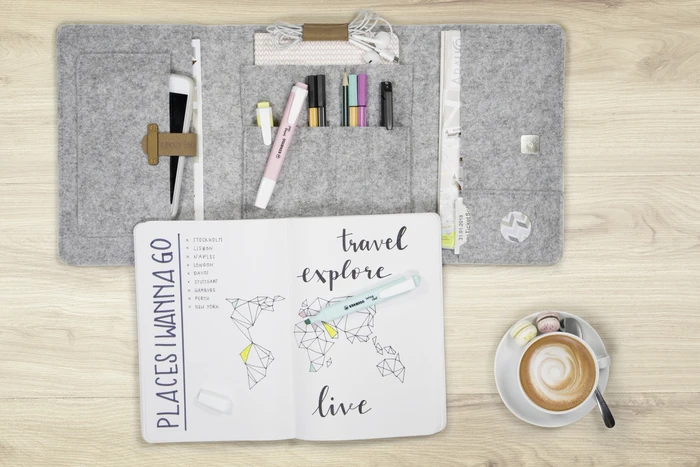 PLACES I WANNA GO
STOCKHOLM
LISBON
NAPLES
LONDON
DAVOS
STUTTGART
HAMBURG
PERTH
NEW YORK
travel
explore
live
STABILO
STABILO